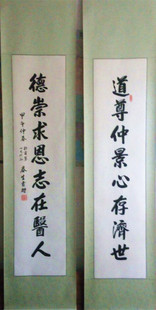 道尊仲景心存濟世
德崇求恩志在醫人
甲午仲春